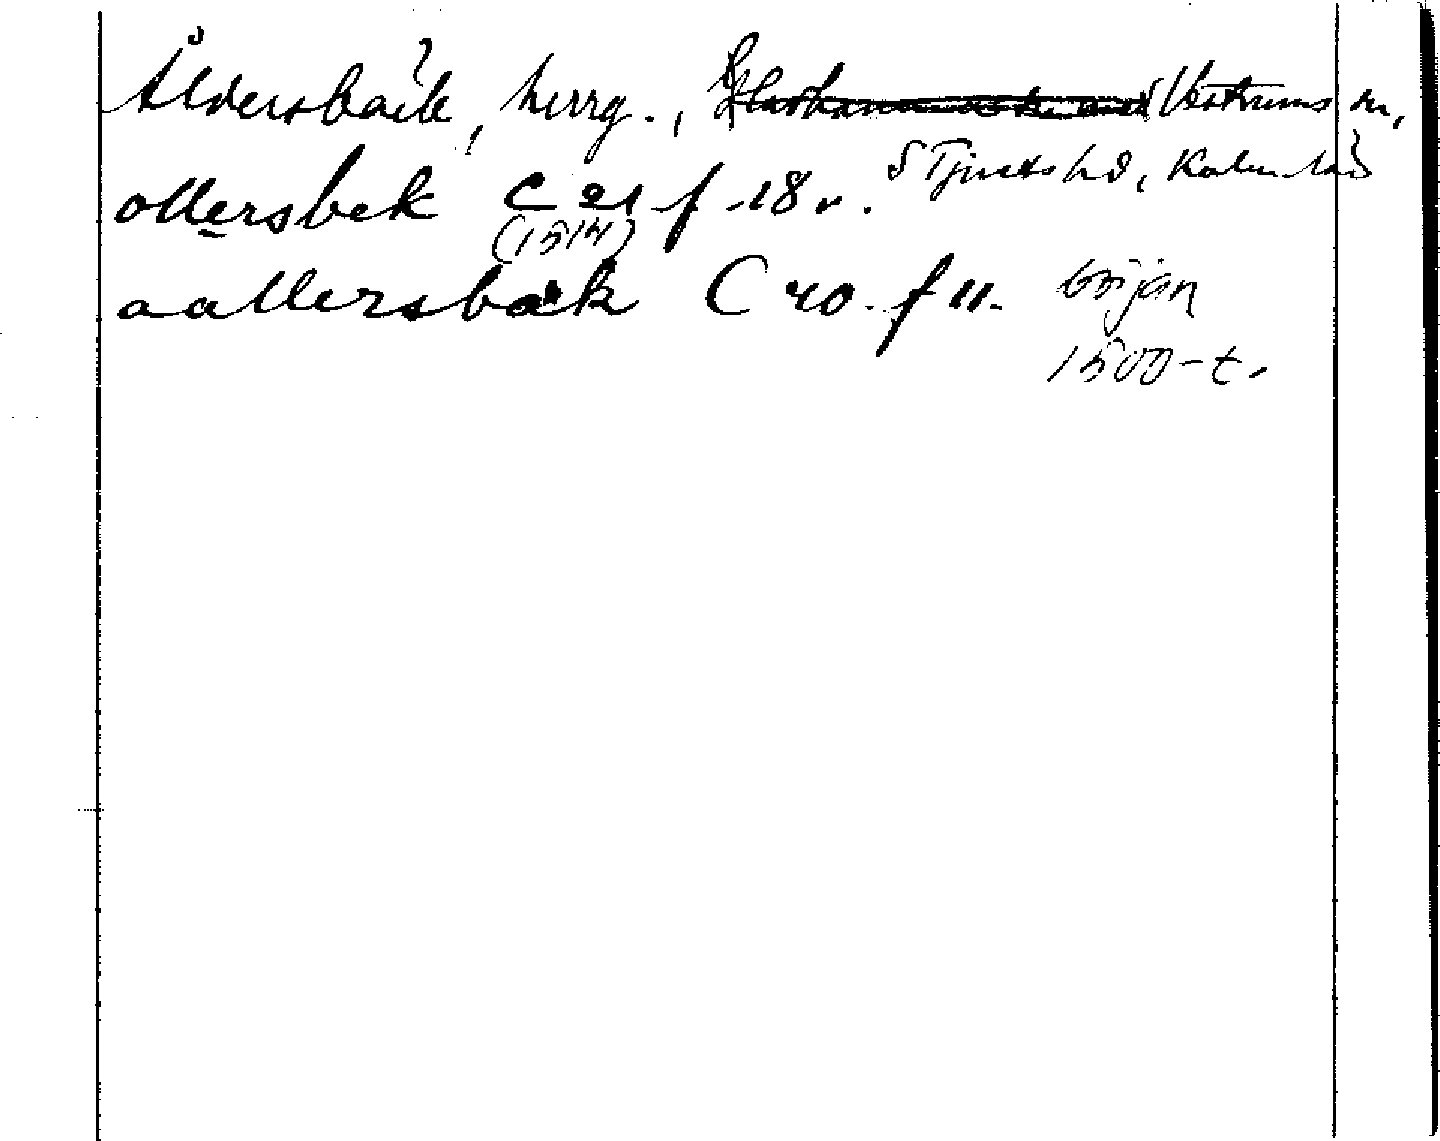 Åldersbäck, herrg., Västrums sn,
S Tjusts hd, Kalm. län
ollersbek C 21 f 18 v.
(1514)
aallersbæk C 40. f 11. början
1500-t.